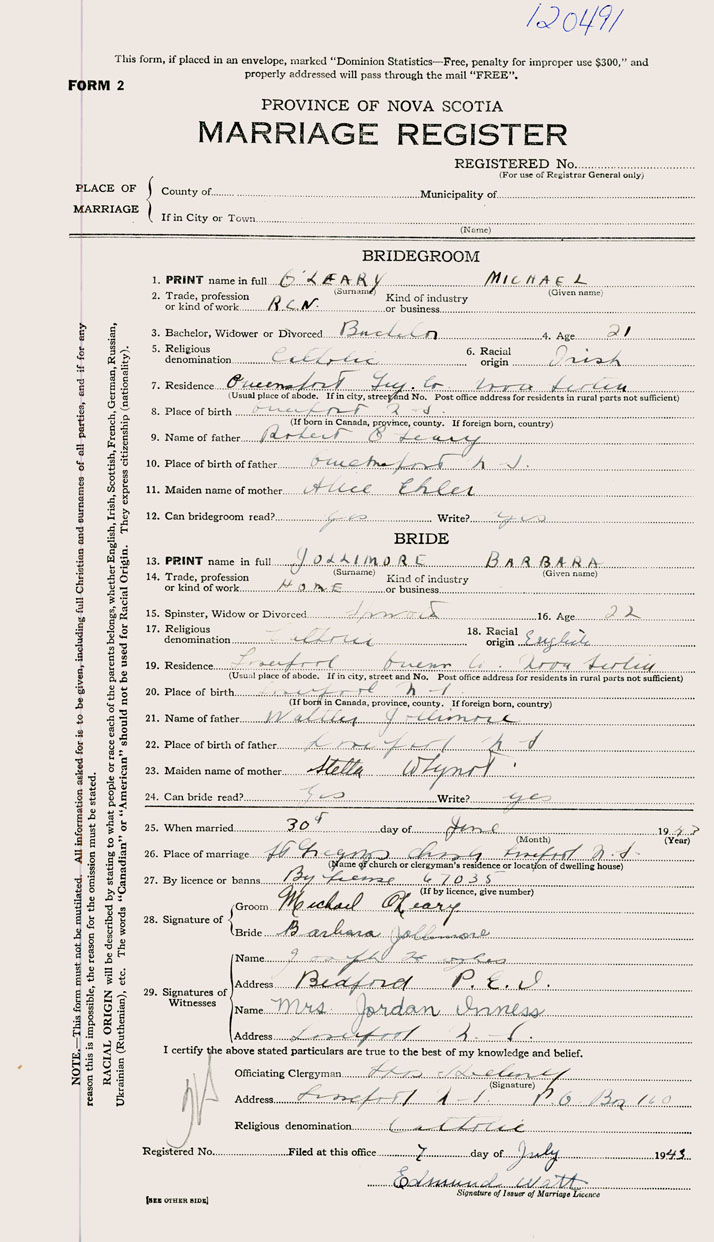 120491
This form, if placed in an envelope, marked "Dominion Statistics—Free, penalty for improper use $300," and
properly addressed will pass through the mail "FREE".
FORM 2
PROVINCE OF NOVA SCOTIA
MARRIAGE REGISTER
REGISTERED No.
(For use of Registrar General only)
PLACE OF MARRIAGE
County of Municipality of
If in City or Town
(Name)
BRIDEGROOM
1. PRINT name in full O'LEARY MICHAEL
(Surname) (Given name)
2. Trade, profession or kind of work R.C.N. Kind of industry or business
3. Bachelor, Widower or Divorced Bachelor 4. Age 21
5. Religious denomination Catholic 6. Racial origin Irish
7. Residence Co. Nova Scotia
(Usual place of abode. If in city, street and No. Post office address for residents in rural parts not sufficient)
8. Place of birth N.S.
(If born in Canada, province, county. If foreign born, country)
9. Name of father Robert O'Leary
10. Place of birth of father N.S.
11. Maiden name of mother Alice Ehler
12. Can bridegroom read? yes Write? yes
BRIDE
13. PRINT name in full JOLLIMORE BARBARA
(Surname) (Given name)
14. Trade, profession or kind of work HOME Kind of industry or business
15. Spinster, Widow or Divorced 16. Age 22
17. Religious denomination Catholic 18. Racial origin English
19. Residence Liverpool Queens Co. Nova Scotia
(Usual place of abode. If in city, street and No. Post office address for residents in rural parts not sufficient)
20. Place of birth Liverpool N.S.
(If born in Canada, province, county. If foreign born, country)
21. Name of father Jollimore
22. Place of birth of father Liverpool N S
23. Maiden name of mother Stella Whynot
24. Can bride read? Yes Write? yes
25. When married 30th day of June 1943
(Month) (Year)
26. Place of marriage St Liverpool N.S.
(Name of church or clergyman's residence or location of dwelling house)
27. By licence or banns By license 67035
(If by licence, give number)
28. Signature of
Groom Michael O'Leary
Bride Barbara Jollimore
29. Signatures of Witnesses
Name Joseph
Address P.E.I.
Name Mrs Jordan Inness
Address Liverpool N.S.
I certify the above stated particulars are true to the best of my knowledge and belief.
Officiating Clergyman
(Signature)
Address Liverpool N.S. P.O. Box 160
Religious denomination Catholic
Registered No. Filed at this office 7 day of July 1943
Edmund Watt
Signature of Issuer of Marriage Licence
[SEE OTHER SIDE]
NOTE.—This form must not be mutilated. All information asked for is to be given, including full Christian and surnames of all parties, and if for any
reason this is impossible, the reason for the omission must be stated.
RACIAL ORIGIN will be described by stating to what people or race each of the parents belongs, whether English, Irish, Scottish, French, German, Russian,
Ukrainian (Ruthenian), etc. The words "Canadian" or "American" should not be used for Racial Origin. They express citizenship (nationality).